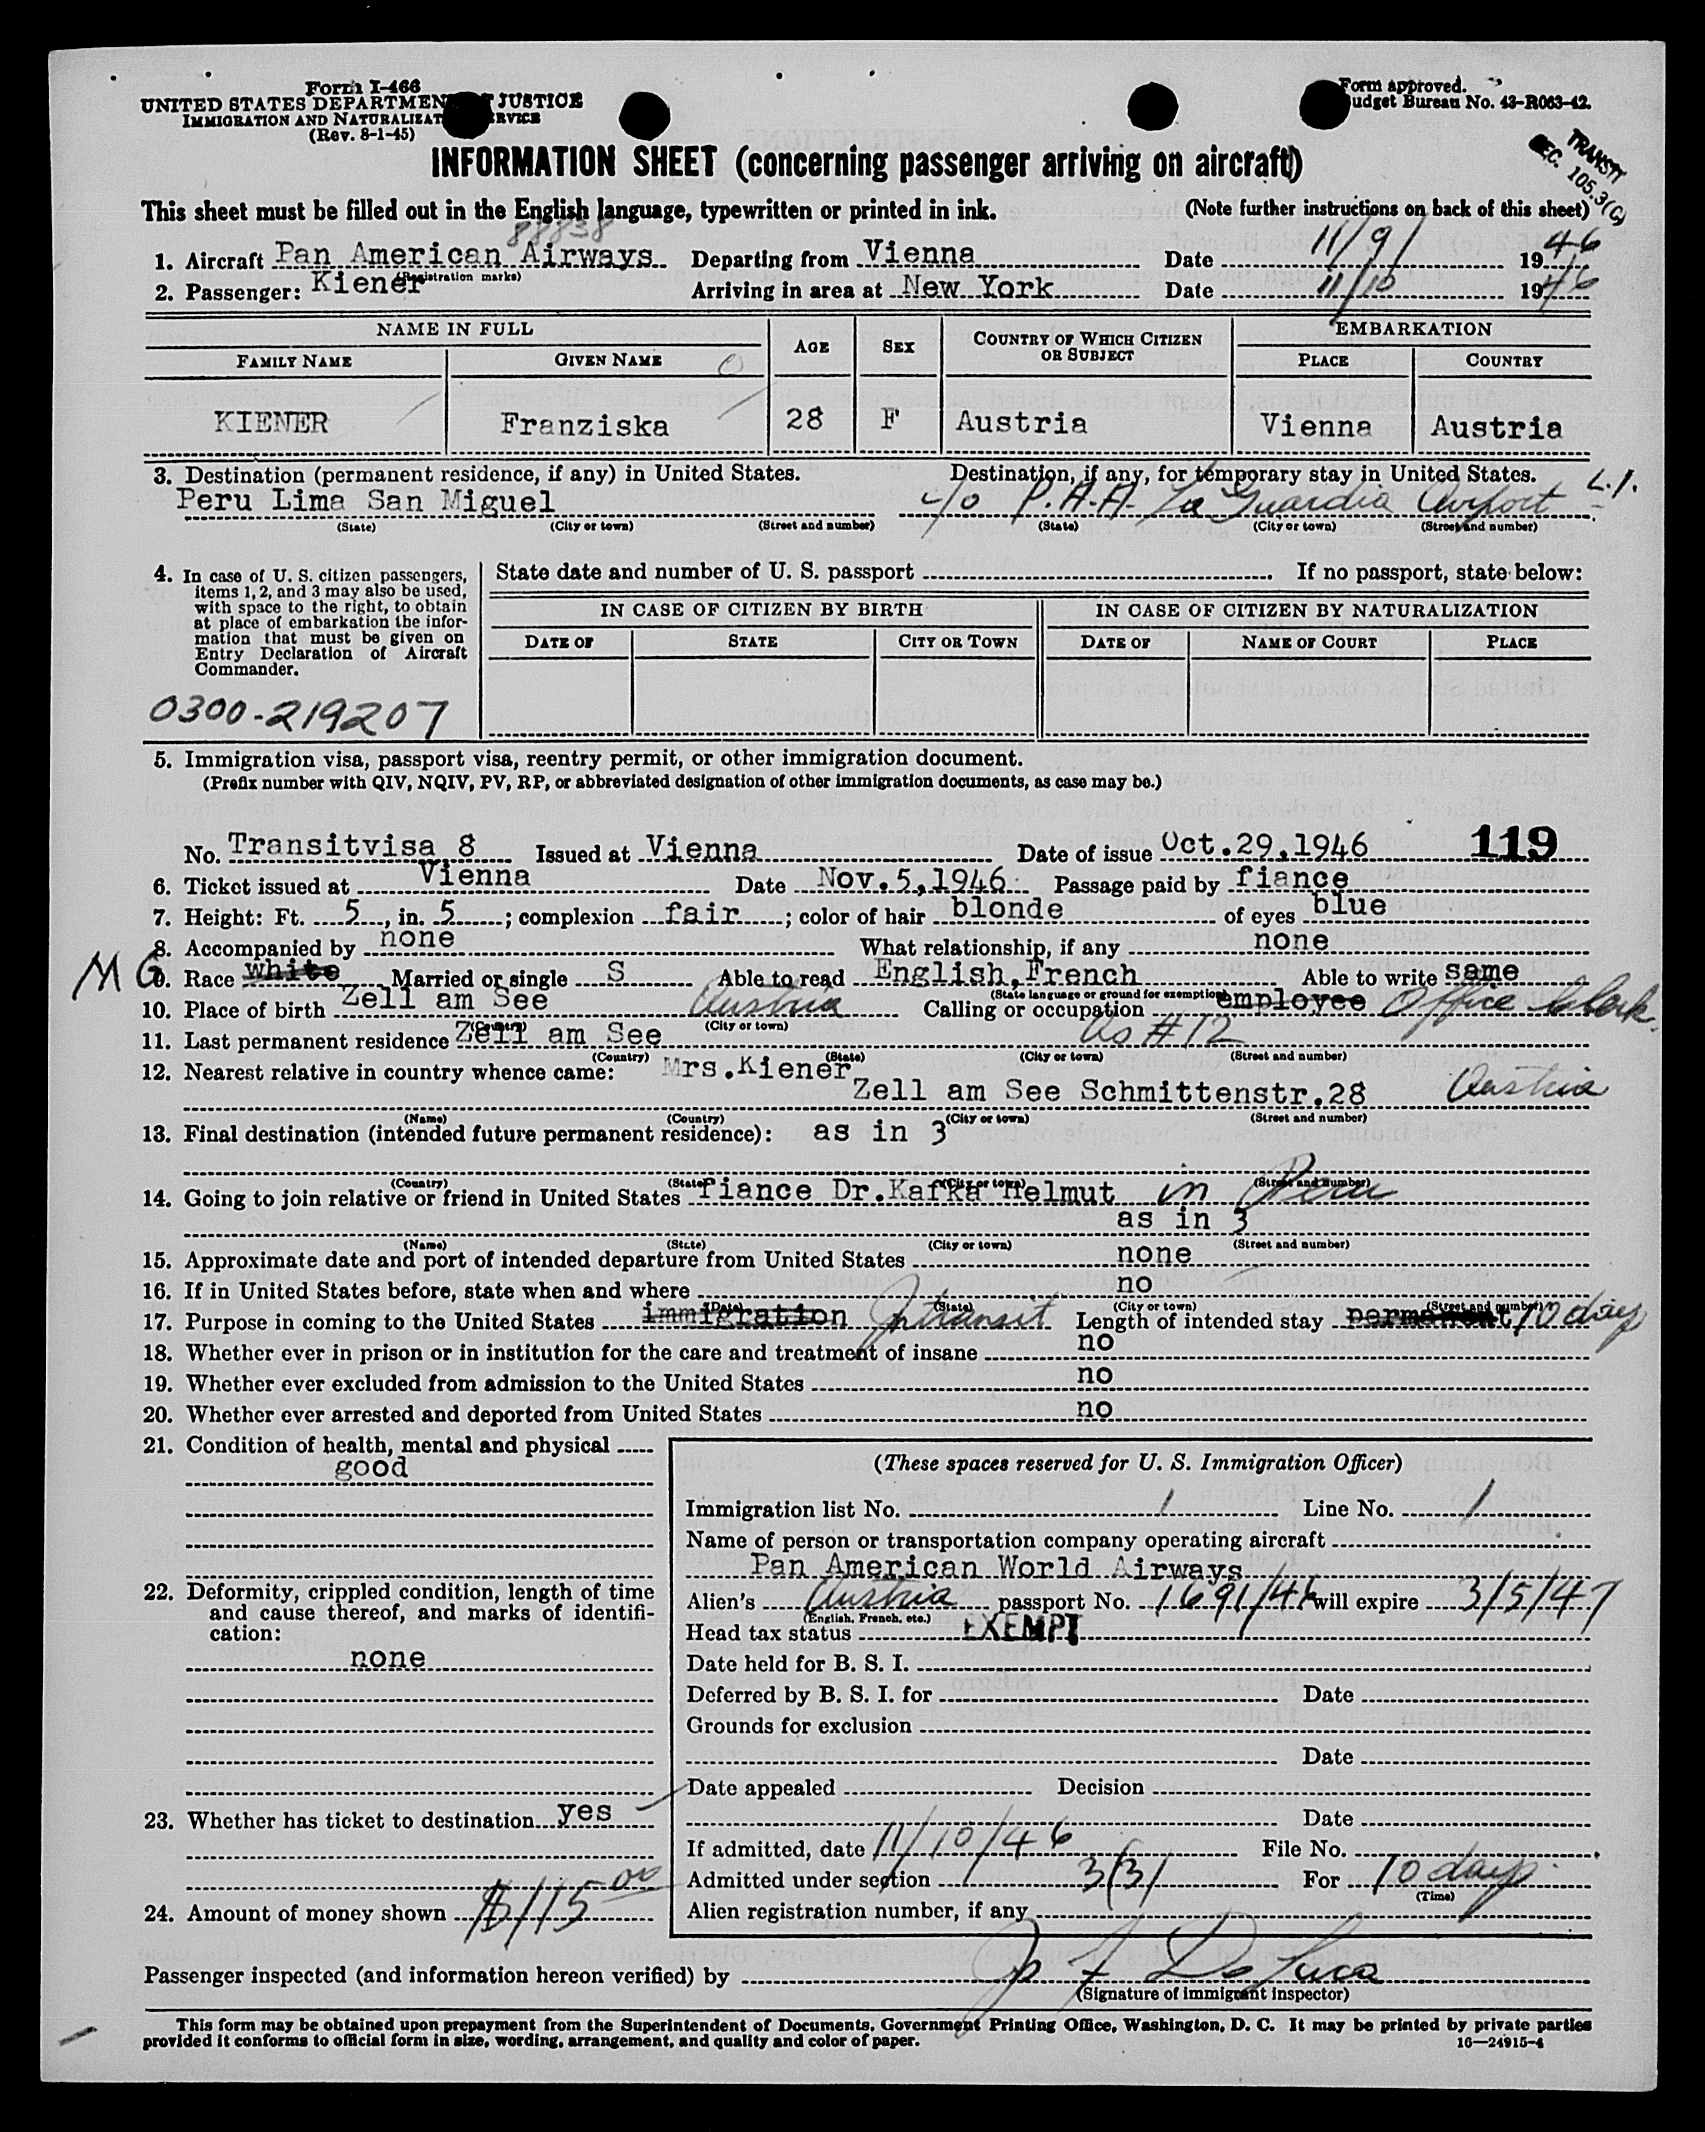 Form I-466
UNITED STATES DEPARTMENT JUSTICE
IMMIGRATION AND NATURALIZAT SERVICE
(Rev. 8-1-45)
Form approved.
Budget Bureau No. 43-R063-42.
TRANSIT
SEC. 105.3(C)
INFORMATION SHEET (concerning passenger arriving on aircraft)
This sheet must be filled out in the English language, typewritten or printed in ink. (Note further instructions on back of this sheet)
88838
1. Aircraft Pan American Airways Departing from Vienna Date 11/9/ 1946
(Registration marks)
2. Passenger: Kiener Arriving in area at New York Date 11/10 1946
NAME IN FULL AGE SEX COUNTRY OF WHICH CITIZEN OR SUBJECT EMBARKATION
FAMILY NAME GIVEN NAME PLACE COUNTRY
KIENER Franziska 28 F Austria Vienna Austria
3. Destination (permanent residence, if any) in United States. Destination, if any, for temporary stay in United States.
Peru Lima San Miguel c/o P.A.A. La Guardia Airport L.I.
(State) (City or town) (Street and number) (State) (City or town) (Street and number)
4. In case of U. S. citizen passengers, items 1, 2, and 3 may also be used, with space to the right, to obtain at place of embarkation the information that must be given on Entry Declaration of Aircraft Commander.
State date and number of U. S. passport . If no passport, state below:
IN CASE OF CITIZEN BY BIRTH IN CASE OF CITIZEN BY NATURALIZATION
DATE OF STATE CITY OR TOWN DATE OF NAME OF COURT PLACE
0300-219207
5. Immigration visa, passport visa, reentry permit, or other immigration document.
(Prefix number with QIV, NQIV, PV, RP, or abbreviated designation of other immigration documents, as case may be.)
No. Transitvisa 8 Issued at Vienna Date of issue Oct.29,1946 119
6. Ticket issued at Vienna Date Nov.5,1946 Passage paid by fiance
7. Height: Ft. 5, in. 5; complexion fair; color of hair blonde of eyes blue
8. Accompanied by none What relationship, if any none
MG
9. Race white Married or single S Able to read English,French Able to write same
(State language or ground for exemption)
10. Place of birth Zell am See Austria Calling or occupation employee Office Clerk
(Country) (City or town)
11. Last permanent residence Zell am See As #12
(Country) (State) (City or town) (Street and number)
12. Nearest relative in country whence came: Mrs.Kiener
Zell am See Schmittenstr.28 Austria
(Name) (Country) (City or town) (Street and number)
13. Final destination (intended future permanent residence): as in 3
(Country) (State) (City or town) (Street and number)
14. Going to join relative or friend in United States fiance Dr.Kafka Helmut in Peru
as in 3
(Name) (State) (City or town) (Street and number)
15. Approximate date and port of intended departure from United States none
16. If in United States before, state when and where no
(Date) (State) (City or town) (Street and number)
17. Purpose in coming to the United States immigration Intransit Length of intended stay permanent 10 days
18. Whether ever in prison or in institution for the care and treatment of insane no
19. Whether ever excluded from admission to the United States no
20. Whether ever arrested and deported from United States no
21. Condition of health, mental and physical
good
22. Deformity, crippled condition, length of time
and cause thereof, and marks of identifi-
cation:
none
23. Whether has ticket to destination yes
24. Amount of money shown $115.00
(These spaces reserved for U. S. Immigration Officer)
Immigration list No. 1 Line No. 1
Name of person or transportation company operating aircraft
Pan American World Airways
Alien's Austria passport No. 1691/46 will expire 3/5/47
(English, French, etc.)
Head tax status EXEMPT
Date held for B. S. I.
Deferred by B. S. I. for Date
Grounds for exclusion
Date
Date appealed Decision
Date
If admitted, date 11/10/46 File No.
Admitted under section 3(3) For 10 days
(Time)
Alien registration number, if any
Passenger inspected (and information hereon verified) by J F De Luca
(Signature of immigrant inspector)
This form may be obtained upon prepayment from the Superintendent of Documents, Government Printing Office, Washington, D. C. It may be printed by private parties
provided it conforms to official form in size, wording, arrangement, and quality and color of paper. 16—24915-4